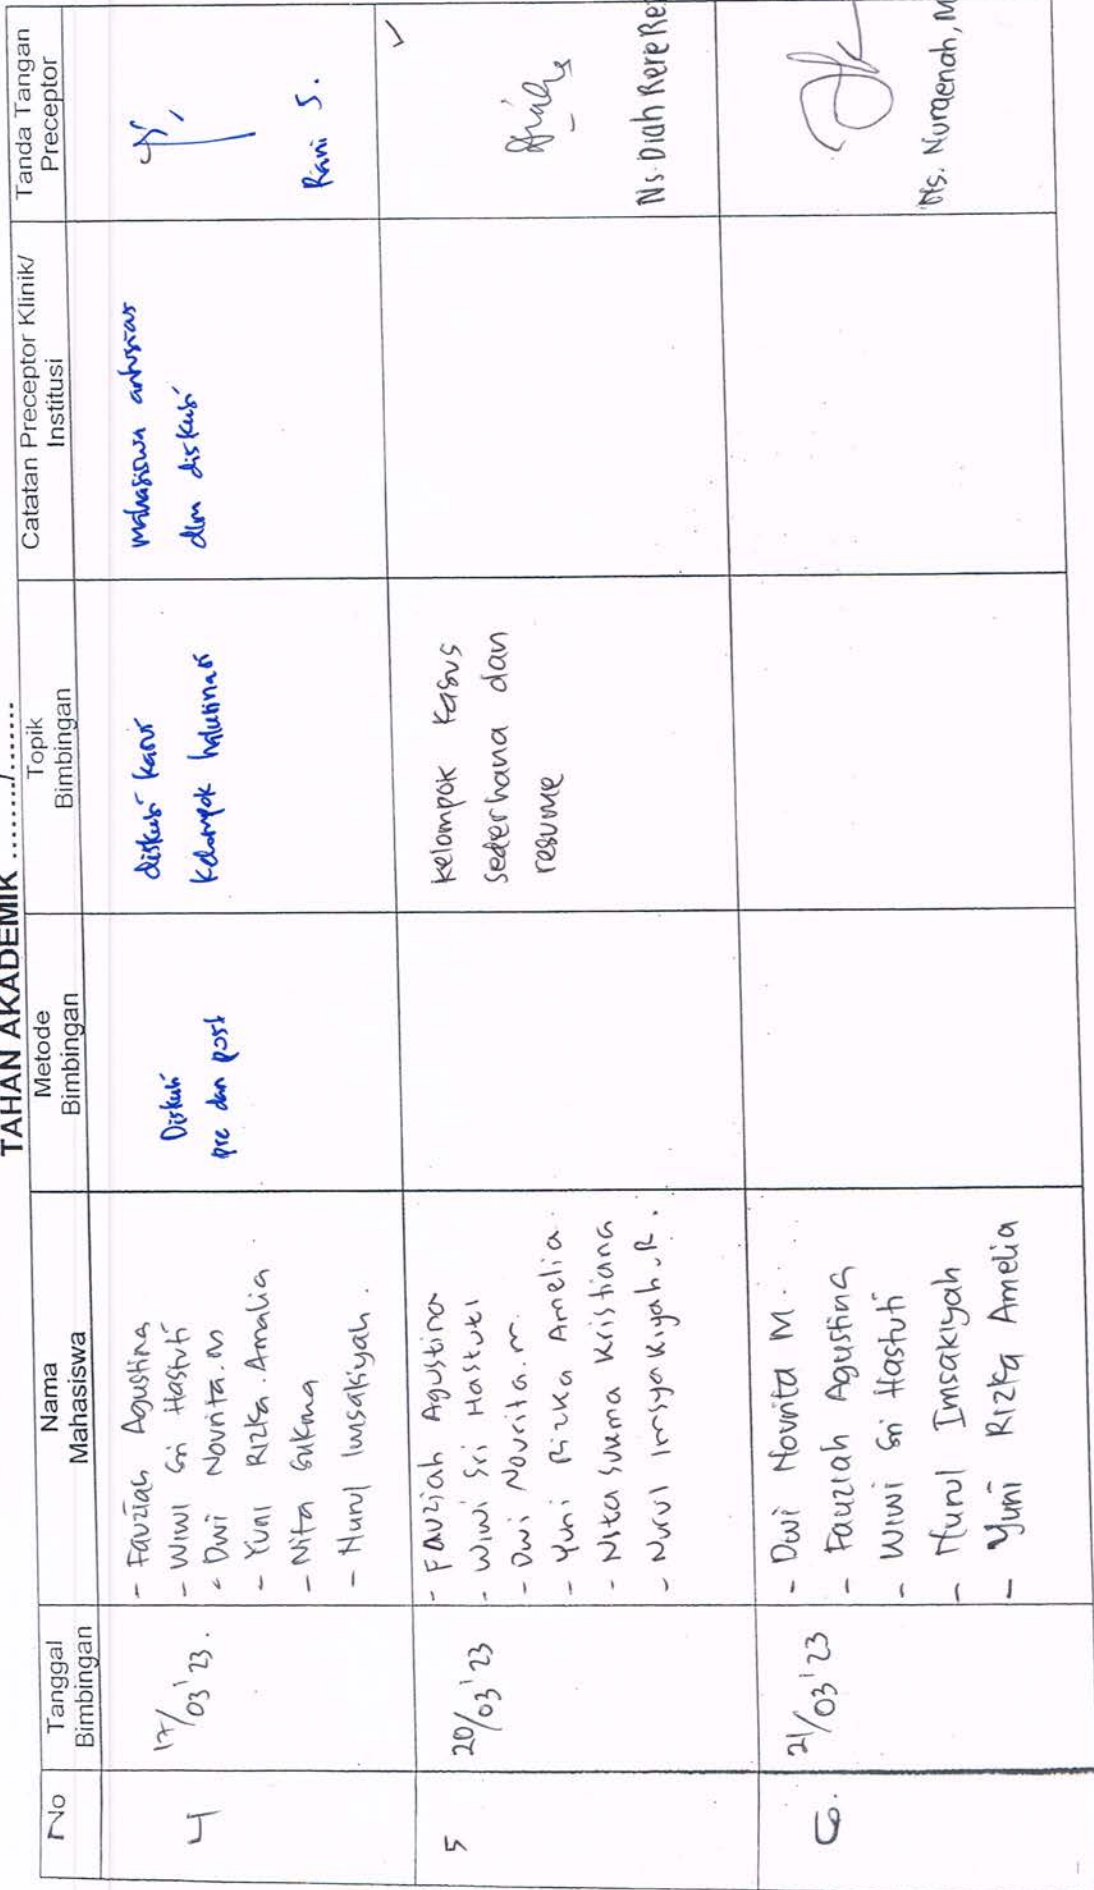 TAHAN AKADEMIK ......../.......
No
Tanggal
Bimbingan
Nama
Mahasiswa
Metode
Bimbingan
Topik
Bimbingan
Catatan Preceptor Klinik/
Institusi
Tanda Tangan
Preceptor
4
17/03'23.
- Fauziah Agustina
- Wiwi Sri Hastuti
- Dwi Novrita.m
- Yuni Rizka.Amalia.
- Nita Sukma
- Nurul Imsakiyah.
Diskusi
pre dan post
diskusi kasus
kelompok halusinasi
mahasiswa antusias
dlm diskusi
Rani S.
5
20/03'23
- Fauziah Agustina
- Wiwi Sri Hastuti
- Dwi Novrita.m.
- Yuni Rizka Amelia.
- Nita Sukma Kristiana
- Nurul Imsyakiyah.R.
kelompok kasus
sederhana dan
resume
Ns. Diah Rere Re
6.
21/03'23
- Dwi Novrita M.
- Fauziah Agustina
- Wiwi Sri Hastuti
- Nurul Imsakiyah
- Yuni Rizka Amelia
Ns. Nuraenah, M